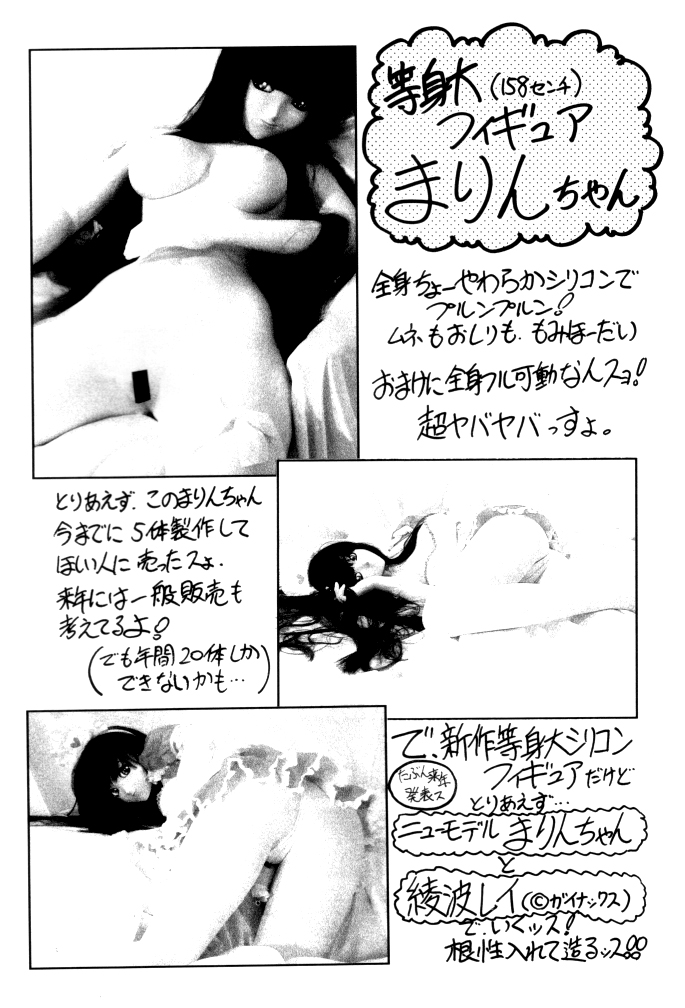 等身大(158センチ)
フィギュア
まりんちゃん
全身ちょーやわらかシリコンで
プルンプルン!
ムネもおしりも、もみほーだい
おまけに全身フル可動なんスョ!
超ヤバヤバっすょ。
とりあえず、このまりんちゃん
今までに5体製作して
ほしい人に売ったスょ.
来年には一般販売も
考えてるよ!
(でも年間20体しか
できないかも…)
で、新作等身大シリコン
フィギュアだけど
たぶん来年
発表ス
とりあえず…
ニューモデル まりんちゃん
と
綾波レイ(©ガイナックス)
で、いくッス!
根性入れて造るッス!!